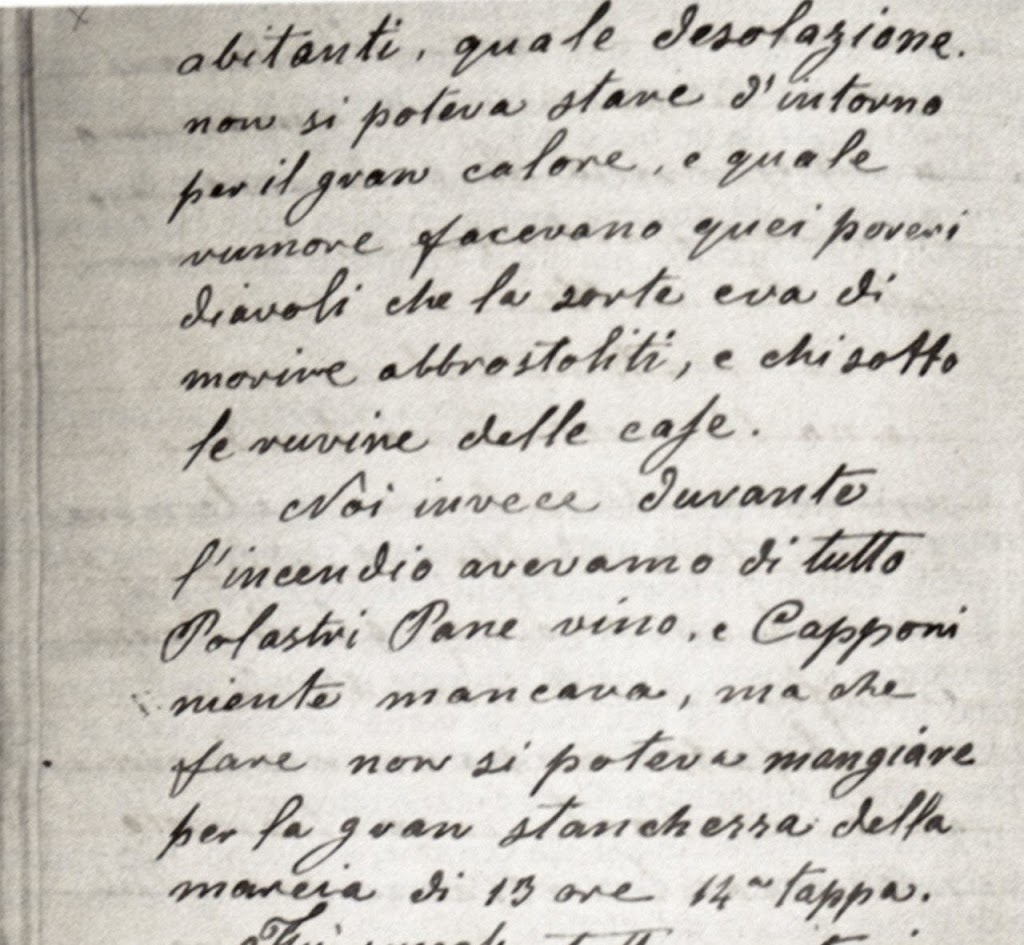 abitanti, quale desolazione.
non si poteva stare d'intorno
per il gran calore, e quale
rumore facevano quei poveri
diavoli che la sorte era di
morire abbrostoliti, e chi sotto
le ruvine delle case.
Noi invece durante
l'incendio avevamo di tutto
Polastri Pane vino, e Capponi
niente mancava, ma che
fare non si poteva mangiare
per la gran stanchezza della
marcia di 13 ore 14ᵃ tappa.